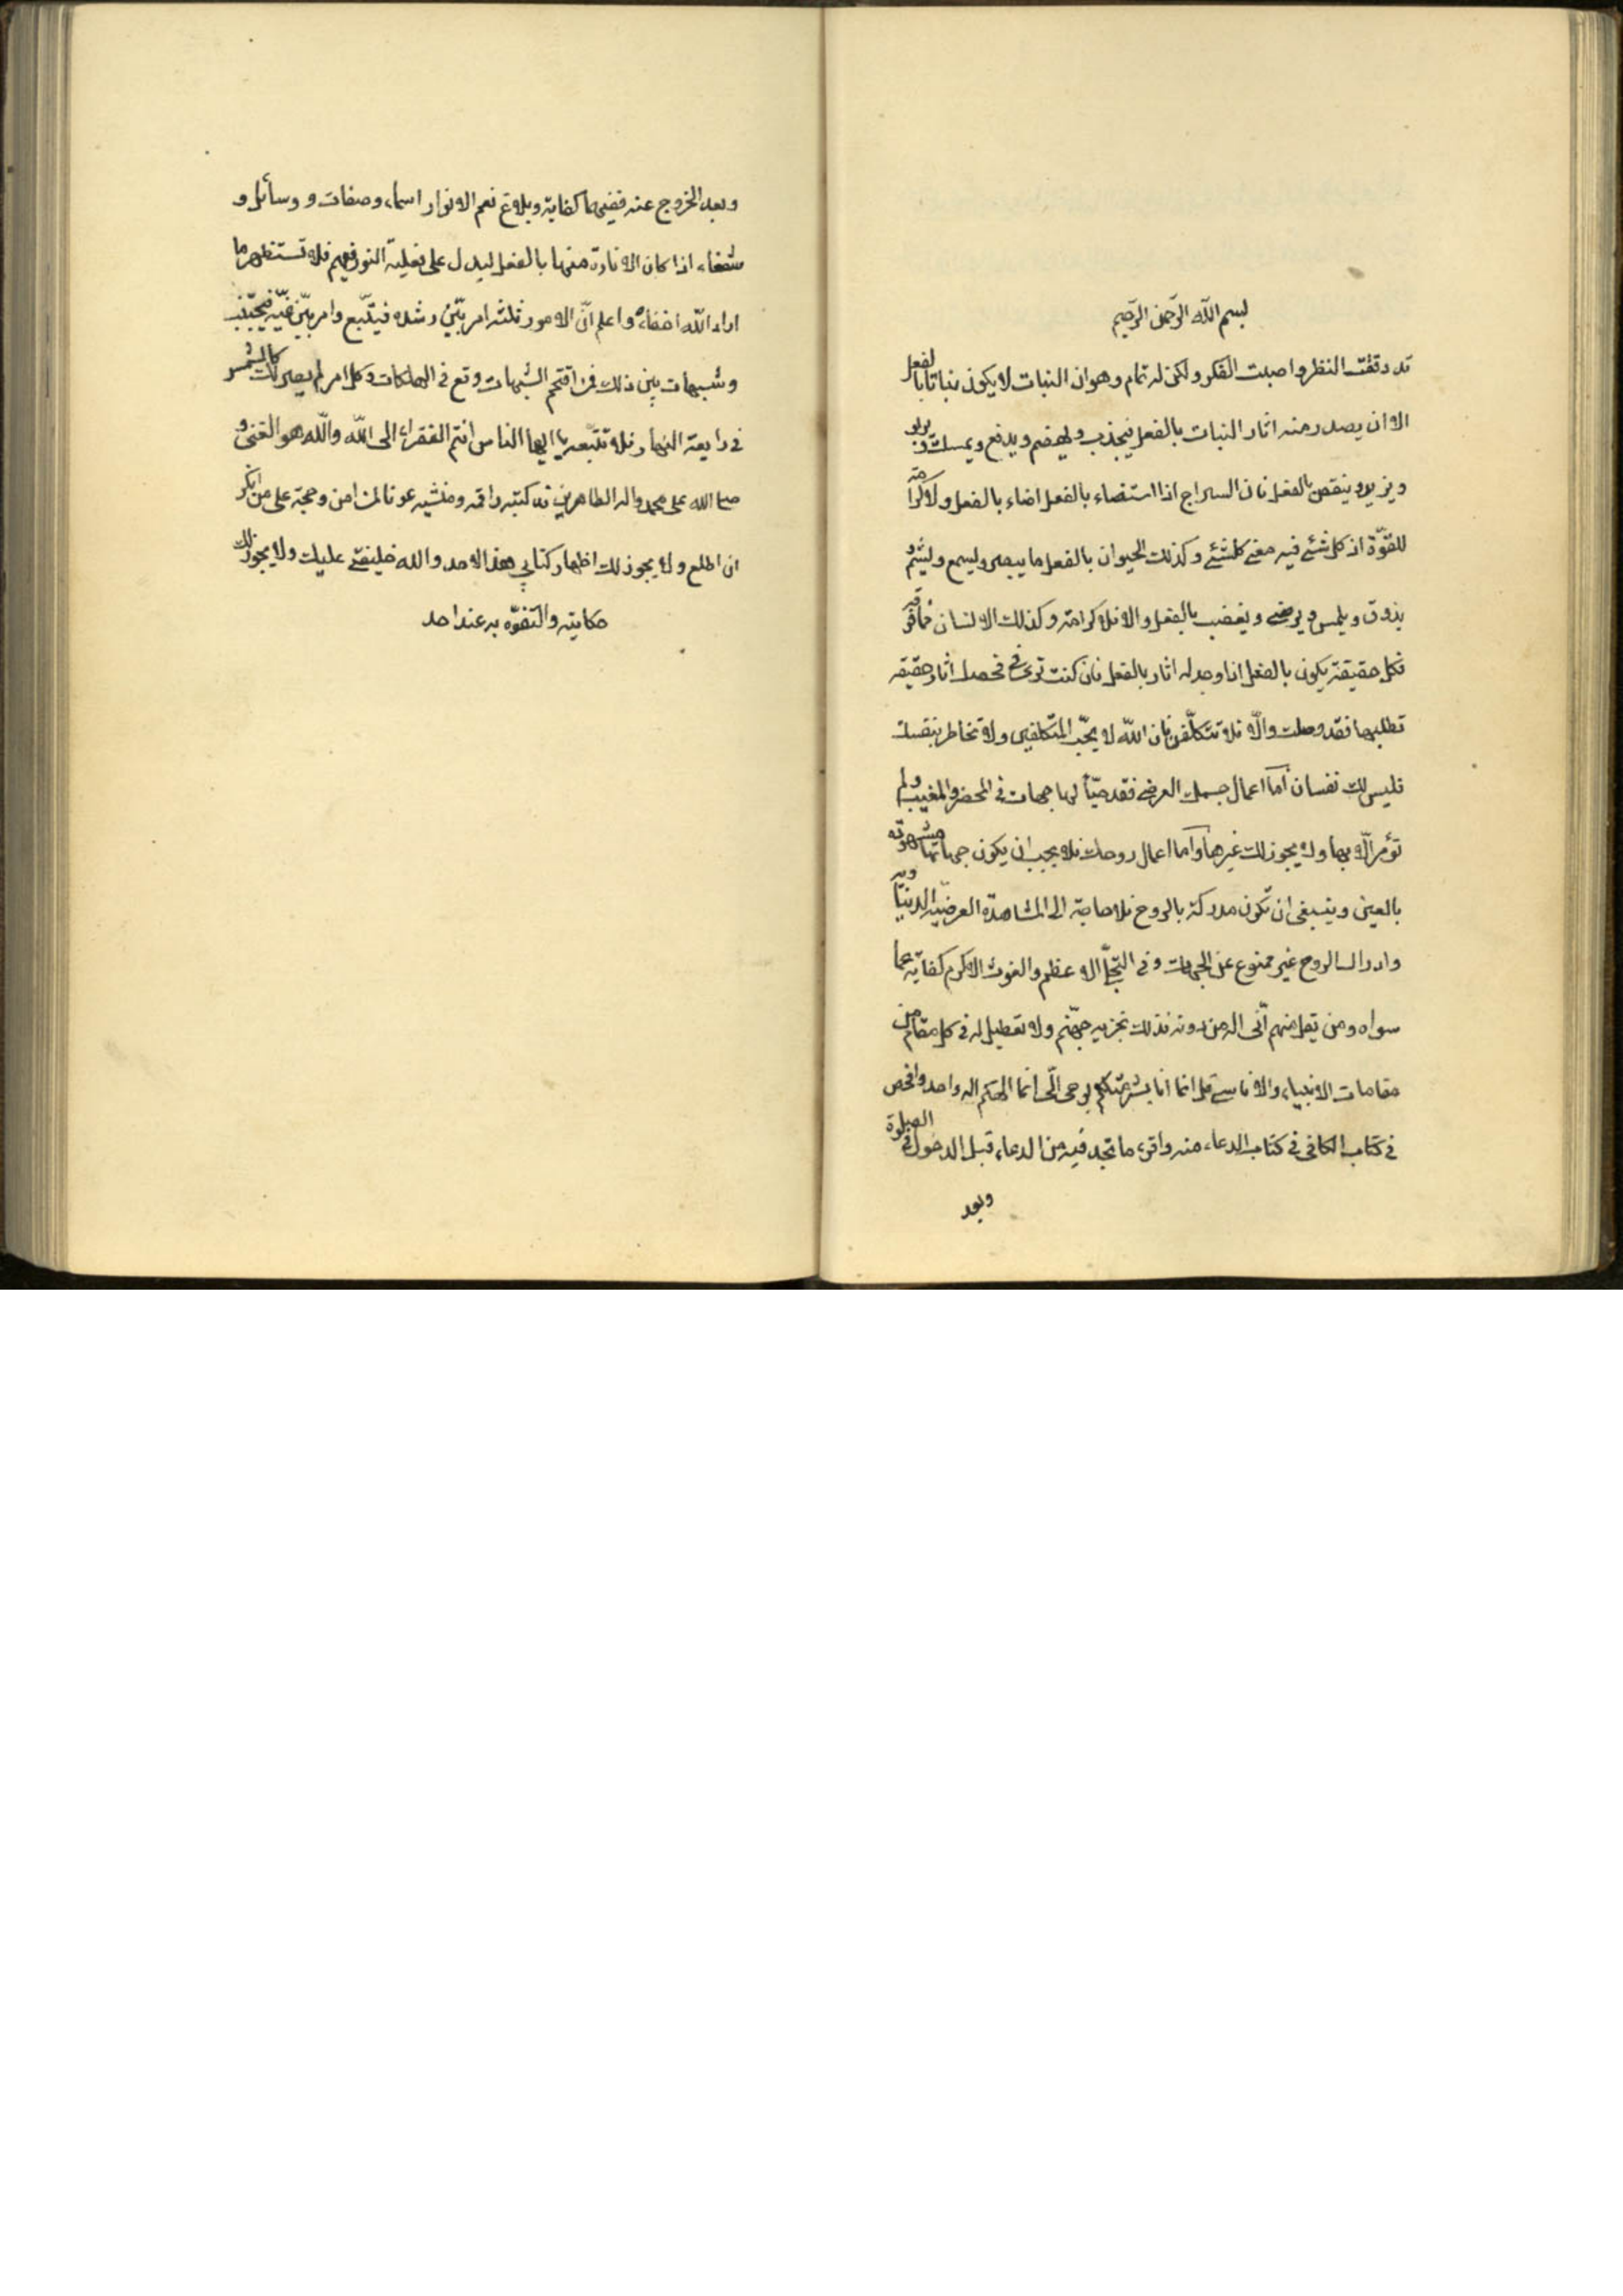 بسم الله الرحمن الرحيم
قد دققت النظر واصبت الفكر ولكن له تمام وهو ان النبات لا يكون نباتا بالفعل
الا ان يصدر منه اثار النبات بالفعل فيجذب ويهضم ويدفع ويمسك ويربو
ويزيد وينقص بالفعل فان السراج اذا استضاء بالفعل اضاء بالفعل ولا كرامة
للقوة اذ كل شئ فيه معنى كلشئ وكذلك الحيوان بالفعل ما يبصر ويسمع ويشم و
يذوق ويلمس ويرضى ويغضب بالفعل والا فلا كرامة وكذلك الانسان
فكل حقيقة يكون بالفعل اذا وجد له اثار بالفعل فان كنت ترى في نفسك اثار حقيقة
تطلبها فقد وصلت والا فلا تتكلفن فان الله لا يحب المتكلفين ولا تخاطر بنفسك
فليس لك نفسان اما اعمال جسمك العرضى فقد هيّأ لها جهات فى المحضر والمغيب ولم
تؤمر الا بها ولا يجوز لك غيرها واما اعمال روحك فلا يجب ان يكون جهاتها مشهودة
بالعين وينبغى ان تكون مدركة بالروح فلا حاجة الى المشاهدة العرضية الدنياوية
وادراك الروح غير ممنوع عن الجهات وفى التجلى الاعظم والغوث الاكرم كفاية عما
سواه ومن يقل منهم انى اله من دونه فذلك نجزيه جهنم ولا تعطيل له فى كل مقام من
مقامات الانبياء والاناسى قل انما انا بشر مثلكم يوحى الى انما الهكم اله واحد وافحص
فى كتاب الكافى فى كتاب الدعاء منه واقرء ما تجد فيه من الدعاء قبل الدخول فى الصلوة
وبعد
وبعد الخروج عنه ففيهما كفاية وبلاغ نعم الانوار اسماء وصفات و وسائل و
شفعاء اذا كان الانارة منها بالفعل ليدل على فعلية النور فيهم فلا تستظهر ما
اراد الله اخفاءه واعلم ان الامور ثلثة امر بيّن رشده فيتّبع وامر بيّن غيّه فيجتنب
وشبهات بين ذلك فمن اقتحم الشبهات وقع فى الهلكات وكل امر لم يصر لك كالشمس
فى رابعة النهار فلا تتبعه يا ايها الناس انتم الفقراء الى الله والله هو الغنى و
صلى الله على محمد واله الطاهرين قد كتبه راقمه ومنشيه عونا لمن امن وحجة على من انكر
ان اطلع ولا يجوز لك اظهار كتابى هذا لاحد والله خليفتى عليك ولا يجوز لك
حكايته والتفوّه به عند احد